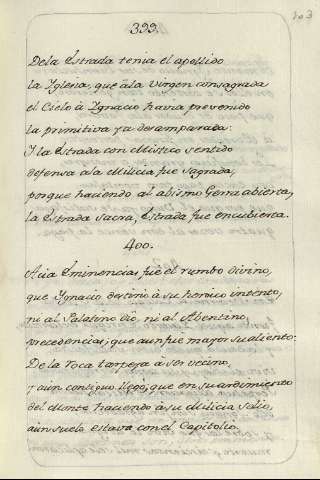 399.
De la Estrada tenia el apellido
la Yglesia, que à la Virgen consagrada
el Cielo à Ygnacio havia prevenido
la primitiva ya desamparada:
Y la Estrada con Mistico sentido
defensa à la Milicia fue sagrada,
porque haciendo al abismo Gerra abierta,
la Estrada Sacra, Estrada fue encubierta.
400.
Acia Eminencias fue el rumbo divino,
que Ygnacio destinò à su heroico intento,
ni al Palatino dio, ni al Abentino,
precedencias, que aun fue mayor su aliento:
De la Roca tarpeya à ser vecino,
y aun contiguo llegò, que en su ardimiento
del Monte haciendo à su Milicia Solio,
aun suelo estava con el Capitolio.